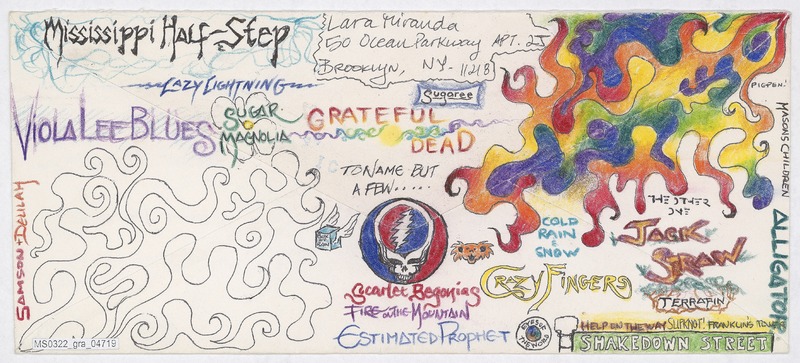 Mississippi Half-Step
Lara Miranda
50 Ocean Parkway APT. 2J
Brooklyn, NY. 11218
LAZY LIGHTNING
Sugaree
PIGPEN!
MASONS CHILDREN
VIOLA LEE BLUES
SUGAR
MAGNOLIA
GRATEFUL
DEAD
TO NAME BUT
A FEW.....
SAMSON + DELILAH
THE OTHER
ONE
COLD
RAIN
&
SNOW
JACK
STRAW
ALLIGATOR
CRAZY FINGERS
TERRAPIN
Scarlet Begonias
FIRE ON THE MOUNTAIN
ESTIMATED PROPHET
EYES OF
THE WORLD
HELP ON THE WAY SLIPKNOT! FRANKLIN'S TOWER
SHAKEDOWN STREET
MS0322_gra_04719